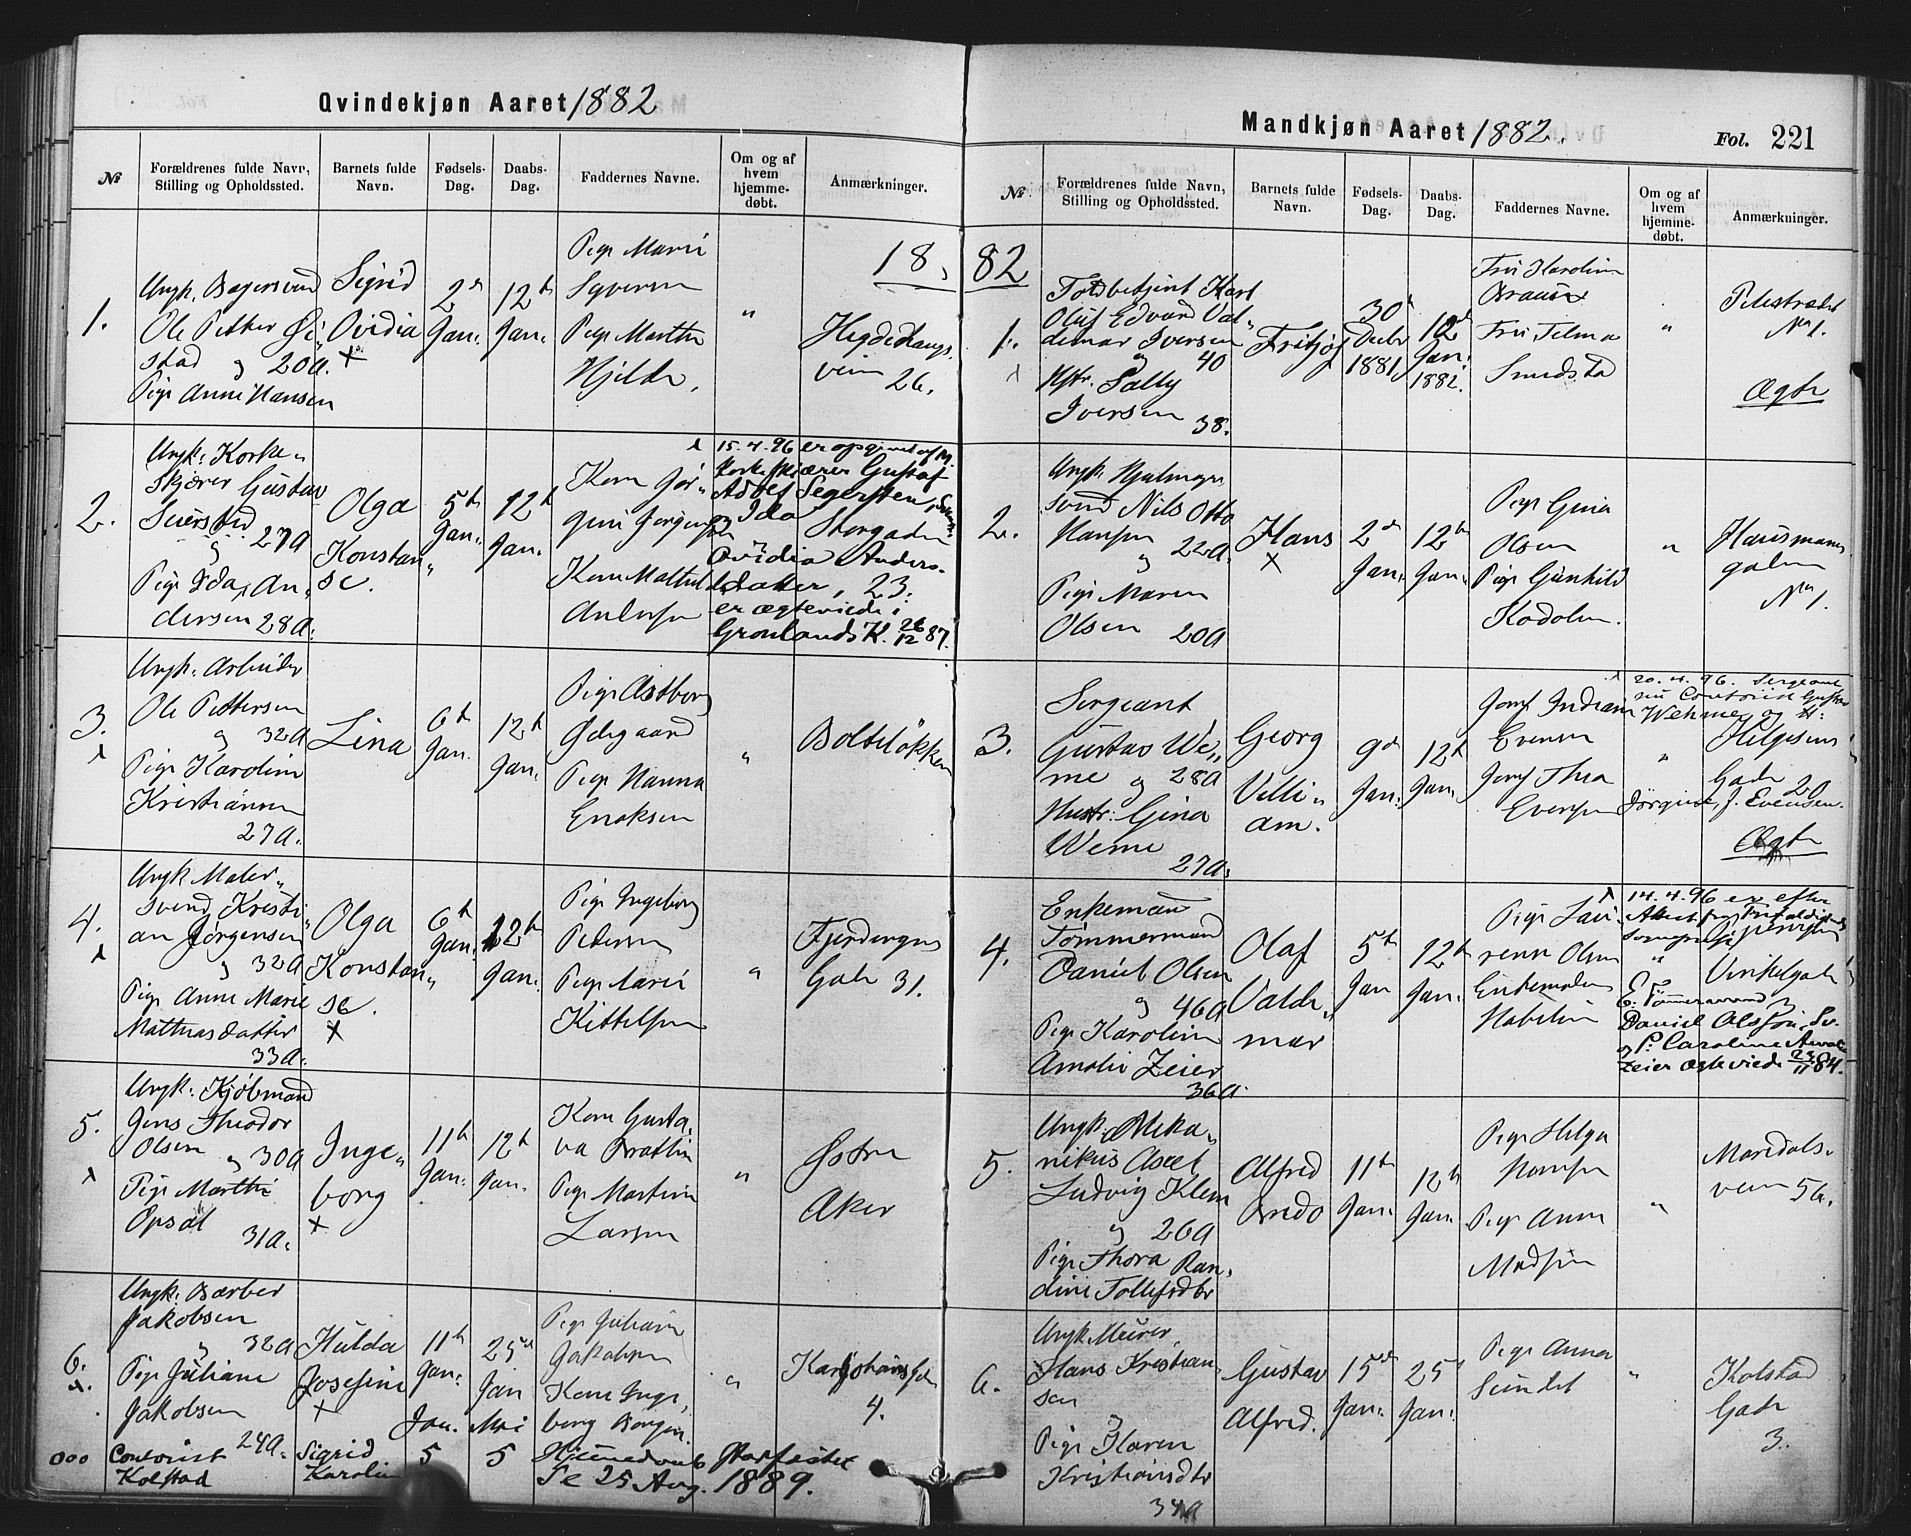 Qvindekjøn Aaret 1882
№
Forældrenes fulde Navn, Stilling og Opholdssted.
Barnets fulde Navn.
Fødsels-Dag.
Daabs-Dag.
Faddernes Navne.
Om og af hvem hjemmedøbt.
Anmærkninger.
18
1.
Ungk. Bagersvend
Ole Petter
stad og 20a.
Pige Anne Hansen
Sigrid
Ovidia
×
2d
Jan.
12t
Jan.
Pige Marie
Syversen
Pige Marthe
Hjelde.
"
Hegdehaugs
veien
26.
2.
Ungk. Korke-
skjærer Gustav
27a
og
Pige Ida An-
dersen 28a.
Olga
Konstan-
se.
5t
Jan.
12t
Jan.
Kone Jør-
gine Jørgensen
Kone Mathilde
Andersen
15.4.96 er opgivet af M.
Korkeskjærer Gustaf
Adolf Segersten,
og Ida
Ovidia Anders-
datter,
er ægteviede i
Grønlands K. 26/12 87.
Storgaden
23.
3.
Ungk. Arbeider
Ole Pettersen
og 32a
Pige Karoline
Kristiansen
27a.
Lina
6t
Jan.
12t
Jan.
Pige Astborg
Ødegaard
Pige Hanna
Eriksen
"
Bolteløkken
4.
Ungk. Maler-
svend Kristi-
an Jørgensen
og 32a
Pige Anne Marie
Mathiasdatter
33a.
Olga
Konstan-
se.
×
6t
Jan.
12t
Jan.
Pige Ingeborg
Pedersen
Pige Marie
Kittelsen
"
Fjerdingens
Gade 31.
5.
Ungk. Kjøbmand
Jens Theodor
Olsen og 30a
Pige Marthe
Opsal
31a.
Inge-
borg
×
11t
Jan.
12t
Jan.
Kone Gusta-
va Bratlie
Pige Martine
Larsen
"
Østre
Aker
6.
Ungk. Barber
Jakobsen
og 32a
Pige Juliane
Jakobsen
24a.
Hulda
Josefine
×
11t
Jan.
25d
Jan
Pige Juliane
Jakobsen
Kone Inge-
borg Borgen.
"
Karl Johans Gd
4.
000
Contorist
Kolstad
Sigrid
Karoline
Jan.
5
Mai
5
Hjemmedaab Stadfæstet
Se 25 Aug. 1889.
Mandkjøn Aaret 1882.
Fol. 221
№
Forældrenes fulde Navn, Stilling og Opholdssted.
Barnets fulde Navn.
Fødsels-Dag.
Daabs-Dag.
Faddernes Navne.
Om og af hvem hjemmedøbt.
Anmærkninger.
82
1.
Toldbetjent Karl
Oluf Edvard Val-
demar Iversen
og 40
Hstr. Sally
Iversen 38.
Fritjof
30t
Decbr
1881
12t
Jan.
1882.
Fru Karoline
Krause
Fru Telma
Smedstad
"
Pilestrædet
No 1.
Ægte
2.
Ungk. Hjulmager
svend Nils Otto
Hansen
og 22a.
Pige Maren
Olsen 20a
Hans
×
2d
Jan.
12t
Jan.
Pige Gina
Olsen
Pige Gunhild
"
Hausmanns
gaden
No 1.
3.
Sergeant
Gustav We-
me og 28a
Hustr. Gina
Weme
27a.
Georg
Villi-
am.
9d
Jan.
12t
Jan.
Jomf Indiane
Evensen
Jomf Thea
Evensen
20.4.96. Sergeant
nu Contorist Gustav
Wehme og H:
Jørgine, f. Evensen.
"
Helgesens
Gade 20
Ægte
4.
Enkemand
Tømmermand
Daniel Olsen
og 46a
Pige Karoline
Amalie Zeier
36a.
Olaf
Valde-
mar
5t
Jan
12t
Jan.
Pige Lau-
rense Olsen
14.4.96 er efter
Attest fra Trefoldigheds
"
Vinkelgade
3
E. Tømmermand
Daniel Olsson,
og P. Caroline Amalie
Zeier ægteviede 23/11 84.
5.
Ungk. Meka-
nikus Axel
Ludvig Klem
og 26a
Pige Thora Ran-
dine Tollefsdtr
Alfred
Bredo
11t
Jan.
12t
Jan.
Pige Helga
Hansen
Pige Anne
Madsen
"
Maridals-
veien 56.
6.
Ungk. Murer
Hans Kristian-
sen
og
Pige Karen
Kristiansdtr
34a
Gustav
Alfred.
15d
Jan.
25d
Jan.
Pige Anna
Sundet
"
Kolstad
Gade
3.